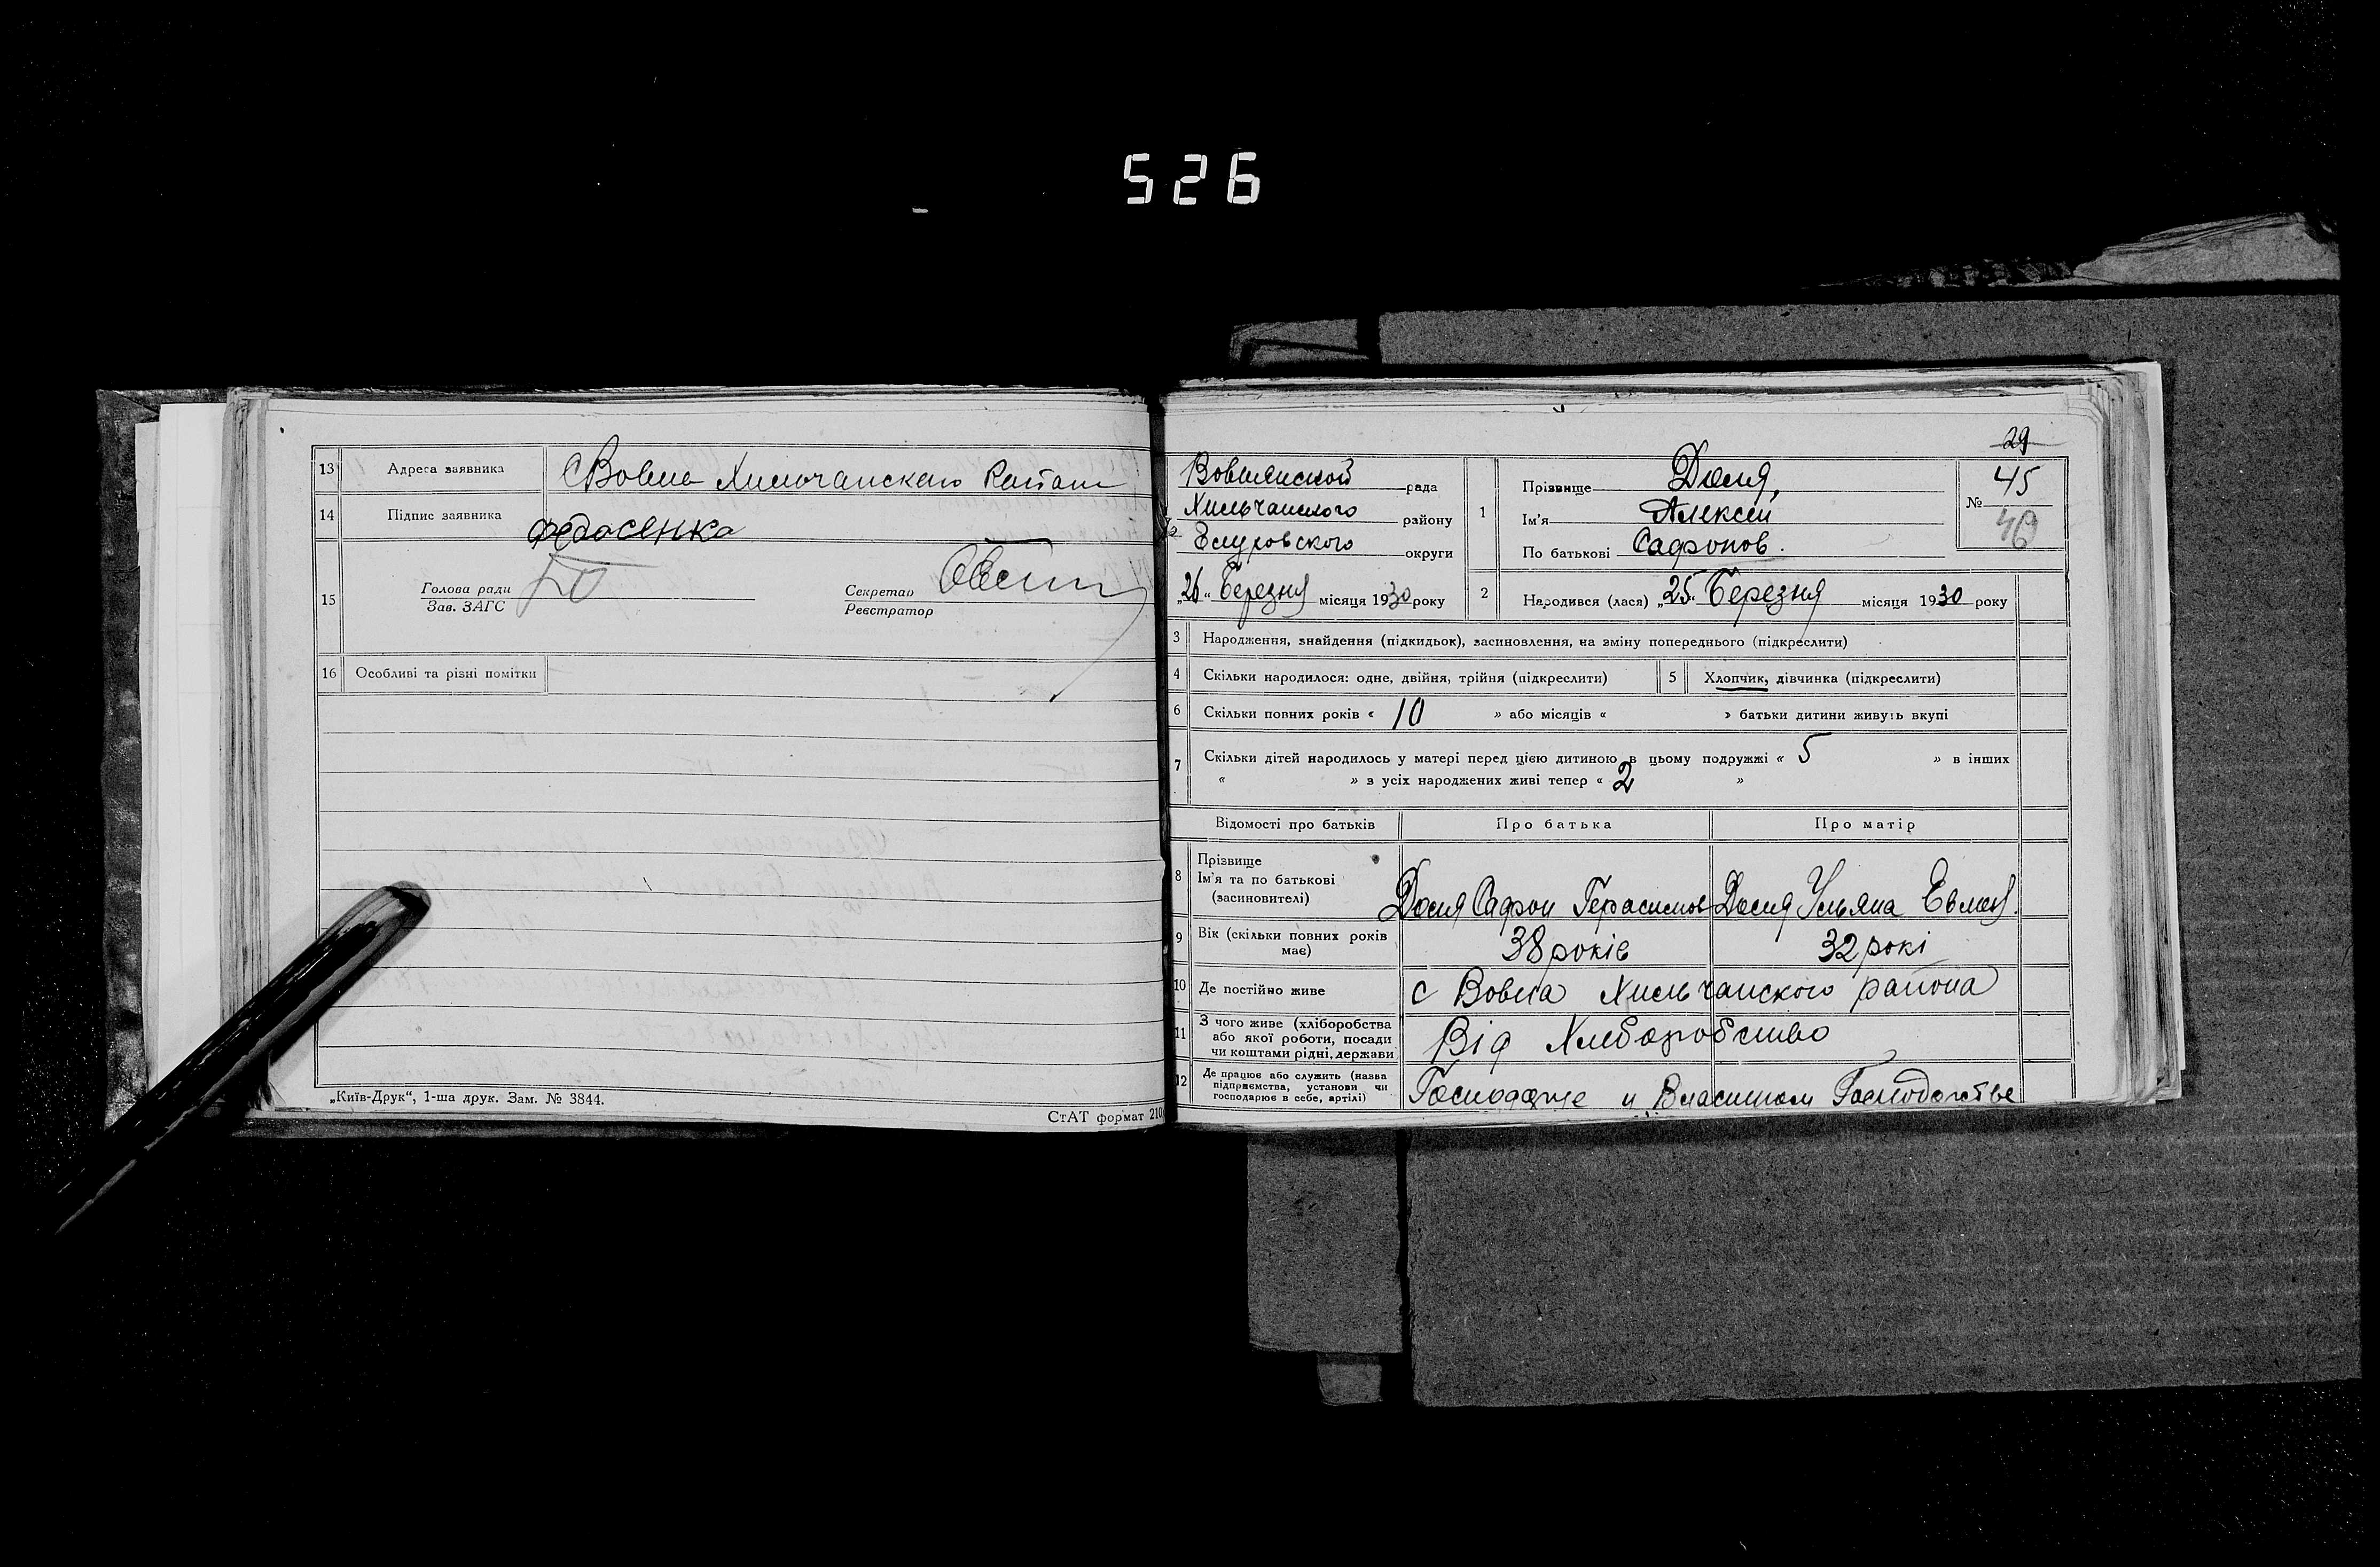 526
13 Адреса заявника с Вовна Хильчанского Района
14 Підпис заявника Федосенко
15 Голова ради
Зав. ЗАГС
Секретар
Реєстратор
16 Особливі та різні помітки
„Київ-Друк“, 1-ша друк. Зам. № 3844.
СтАТ формат 210
29
Вовнянской рада
Хильчанского району
округи
„26“ Березня місяця 1930 року
1 Прізвище Доля,
Ім'я Алексей
По батькові Сафонов.
№ 45
46
2 Народився (лася) „25“ Березня місяця 1930 року
3 Народження, знайдення (підкидьок), засиновлення, на зміну попереднього (підкреслити)
4 Скільки народилося: одне, двійня, трійня (підкреслити) 5 Хлопчик, дівчинка (підкреслити)
6 Скільки повних років « 10 » або місяців « » батьки дитини живуть вкупі
7 Скільки дітей народилось у матері перед цією дитиною в цьому подружжі « 5 » в інших
« » з усіх народжених живі тепер « 2 »
Відомості про батьків Про батька Про матір
8 Прізвище
Ім'я та по батькові
(засиновителі)
Доля Сафон Герасимов Доля Ульяна
9 Вік (скільки повних років
має)
38 років 32 рокі
10 Де постійно живе с Вовна Хильчанского района
11 З чого живе (хліборобства
або якої роботи, посади
чи коштами рідні, держави
Від Хлеборобство
12 Де працює або служить (назва
підприємства, установи чи
господарює в себе, артілі)